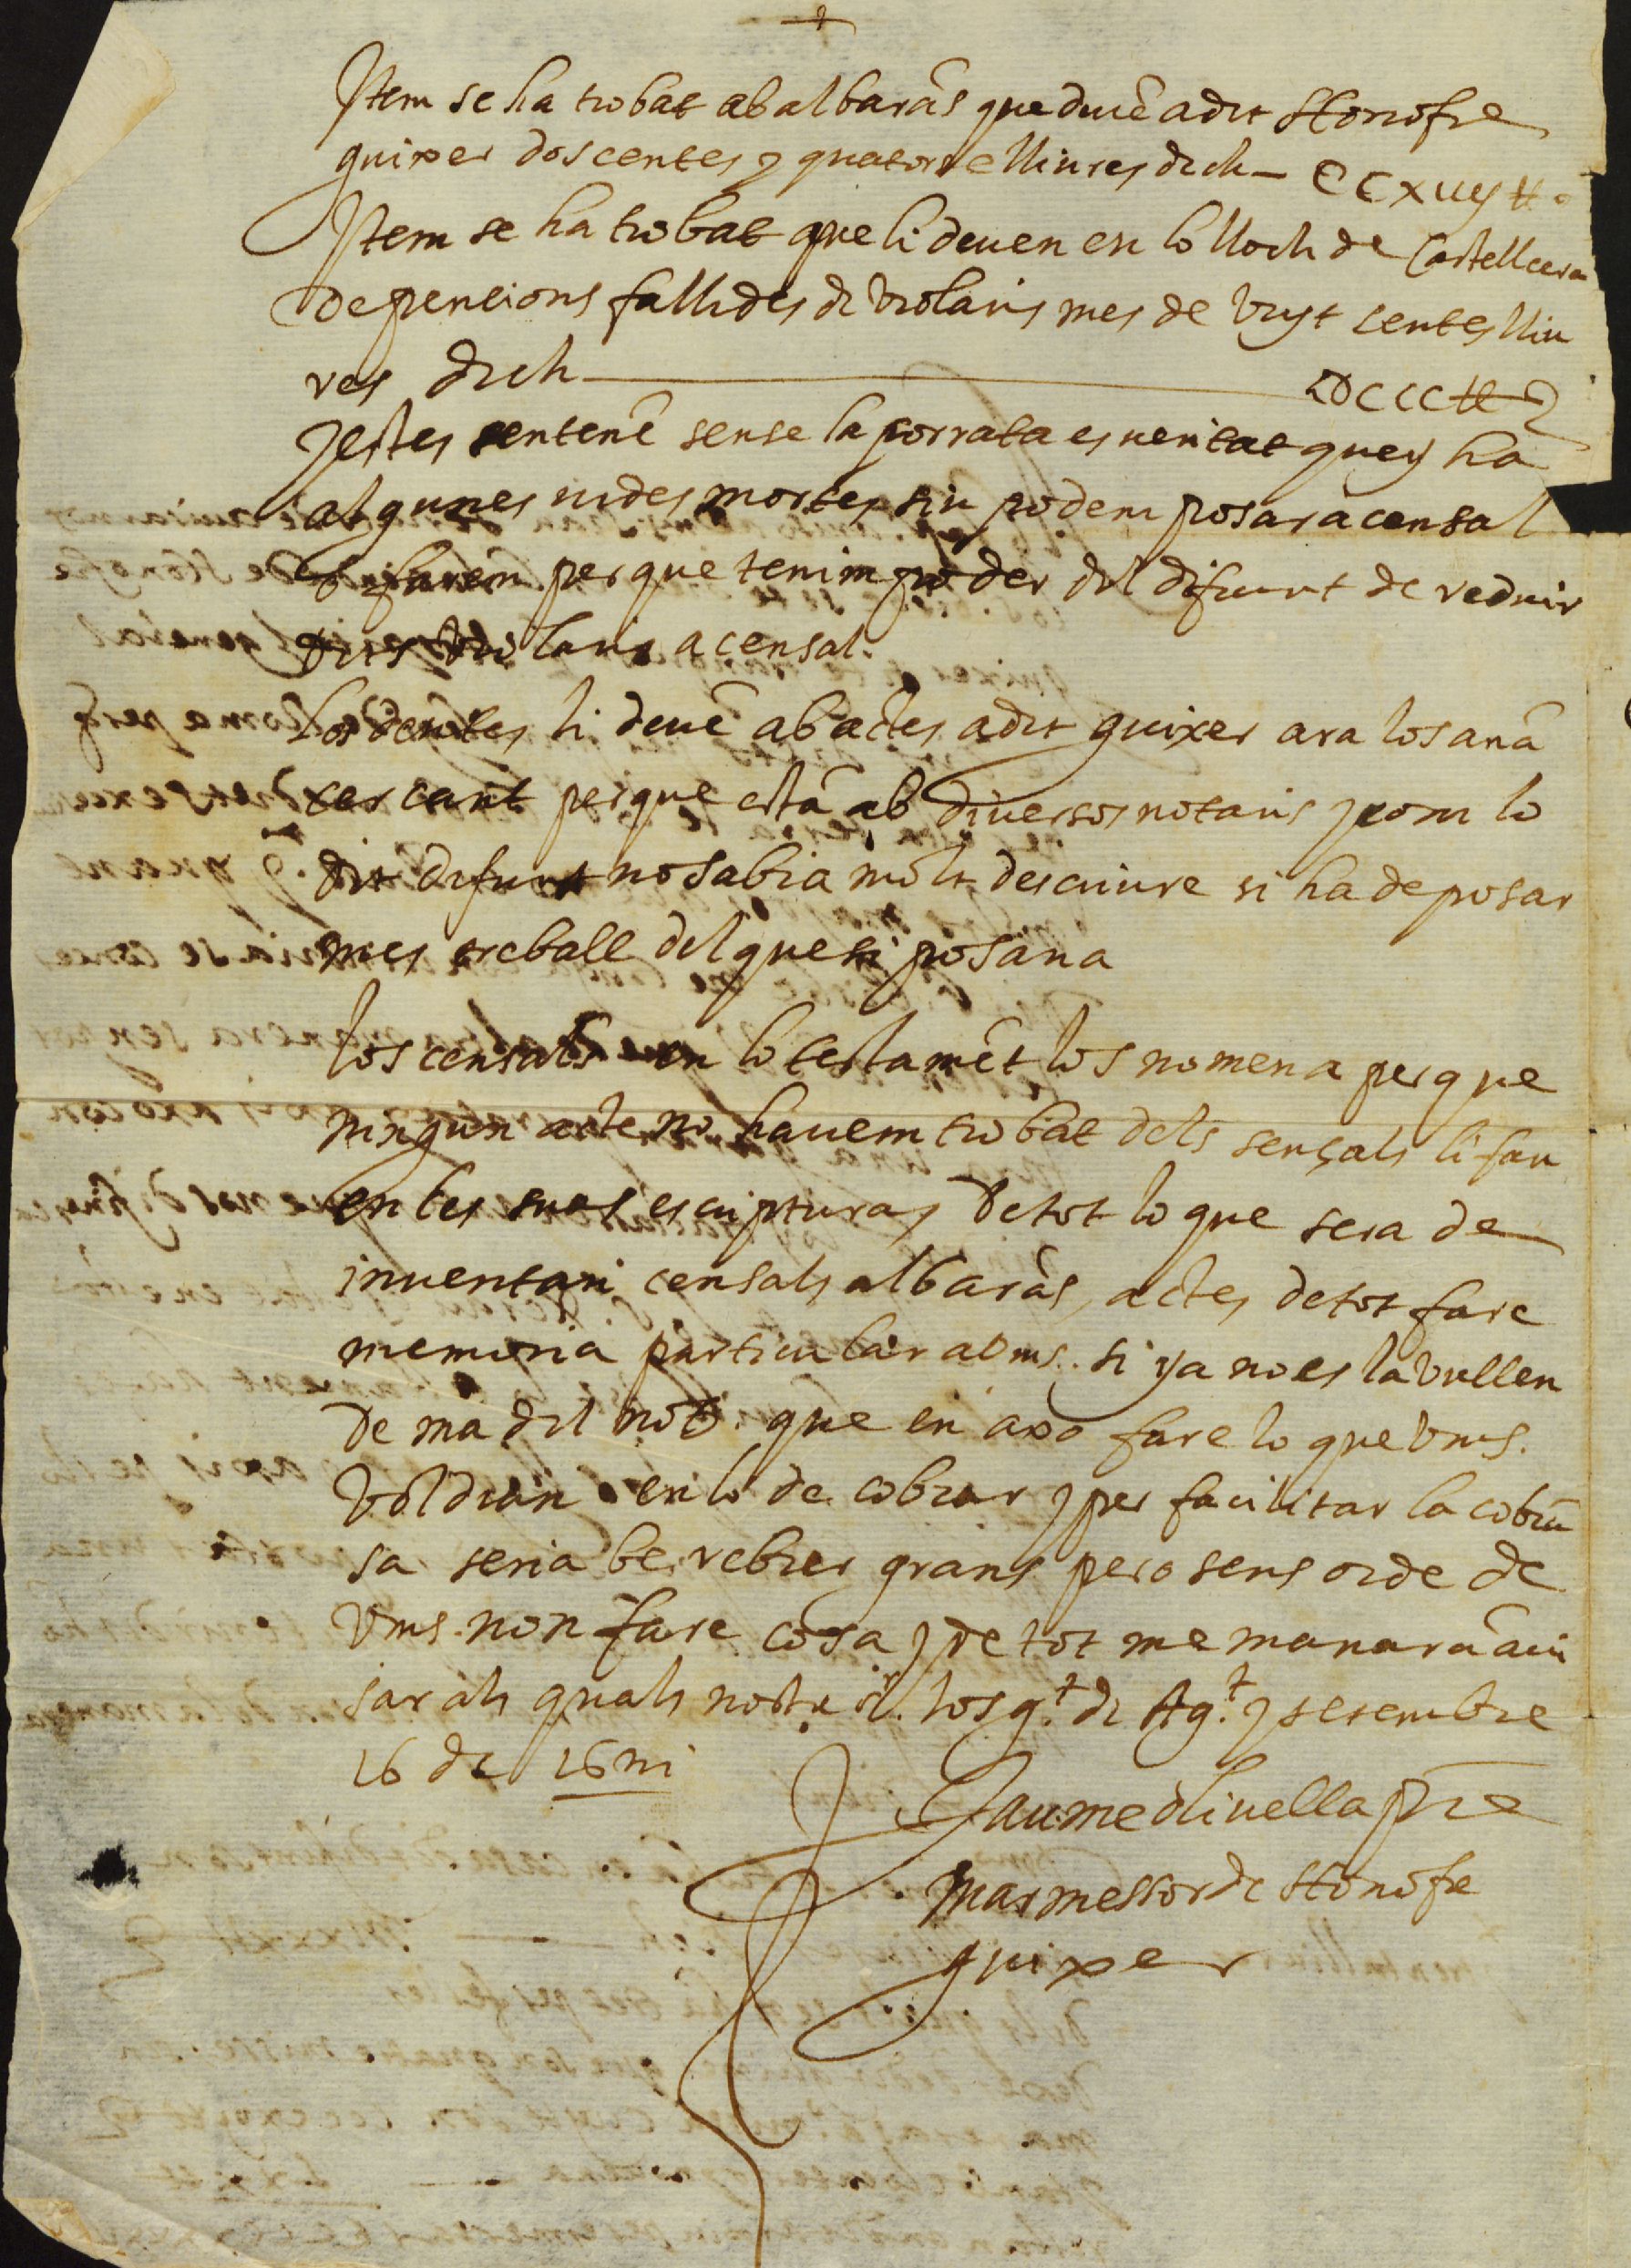 +
Item se ha trobat ab albarãs que duuẽ a dit Honofre
guixer doscentes y quatorse lliures dich — CCxiiij ll.
Item se ha trobat que li deuen en lo lloch de Castellcera
de pencions fallides de violaris mes de vuyt centes lliu
res dich — DCCC ll
y estes sentenẽ sense la porrata es veritat quey ha
algunes vides mortes siu podem posar a censal
o farem perque tenim poder del difunt de reduir
dits violaris a censal.
Los li deuẽ ab actes a dit guixer ara los anã
cercant perque estã ab diuersos notaris y com lo
dit difunt no sabia molt descriure si ha de posar
mes treball del que si posaria
los censals en lo testamẽt los nomena perque
ningun acte no hauem trobat dels sençals li fan
en les suas escripturas de tot lo que sera de
inuentari censals albaràs, actes de tot fare
memoria particular a vms. si ya no es la vullen
de ma del notͥ. que en axo fare lo que vms.
voldran en lo de cobrar y per facilitar la cobrã
sa seria be rebrer grans pero sens orde de
vms. non fare cosa y de tot me manarã aui
sar als quals nostre sʳ. los gᵗ. de Agᵗ. y setembre
16 de
Jaume oliuella pre
marmessor de Honofre
guixer